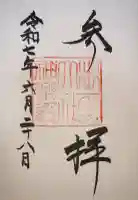 参拝
令和七年六月二十八日